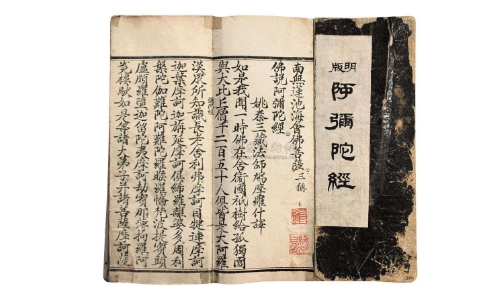 明版
阿彌陀經
南無蓮池海會佛菩薩 三稱
佛說阿彌陀經
姚秦三藏法師鳩摩羅什譯
如是我聞一時佛在舍衛國祇樹給孤獨園
與大比丘僧千二百五十人俱皆是大阿羅
漢眾所知識長老舍利弗摩訶目犍連摩訶
迦葉摩訶迦旃延摩訶俱絺羅離婆多周利
槃陀伽難陀阿難陀羅睺羅憍梵波提賓頭
盧頗羅墮迦留陀夷摩訶劫賓那薄拘羅阿
㝹樓馱如是等諸大弟子并諸菩薩摩訶